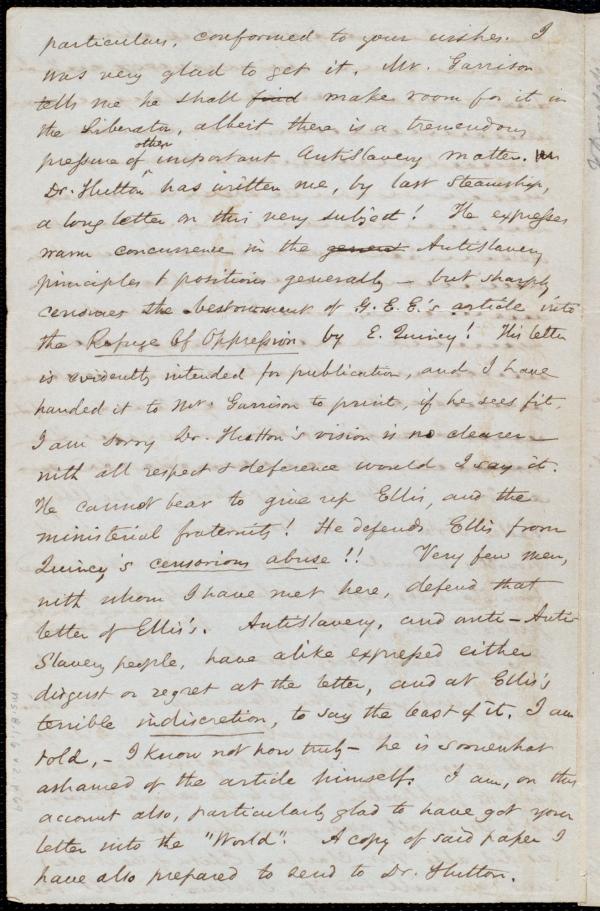 particulars, conformed to your wishes. I
was very glad to get it. Mr. Garrison
tells me he shall find make room for it in
the Liberator, albeit there is a tremendous
pressure of other important AntiSlavery matter.
Dr. Hutton has written me, by last Steamship,
a long letter on this very subject! He expresses
warm concurrence in the general Antislavery
principles & positions generally – but sharply
censures the bestowment of G. E. E.'s article into
the Refuge Of Oppression by E. Quincy! His letter
is evidently intended for publication, and I have
handed it to Mr. Garrison to print, if he sees fit.
I am sorry Dr. Hutton's vision is no clearer –
with all respect & deference would I say it.
He cannot bear to give up Ellis, and the
ministerial fraternity! He defends Ellis from
Quincy's censorious abuse!! Very few men,
with whom I have met here, defend that
letter of Ellis's. AntiSlavery, and anti-Anti-
Slavery people, have alike expressed either
disgust or regret at the letter, and at Ellis's
terrible indiscretion, to say the least of it. I am
told, – I know not how truly – he is somewhat
ashamed of the article himself. I am, on this
account also, particularly glad to have got your
letter into the "World". A copy of said paper I
have also prepared to send to Dr. Hutton.